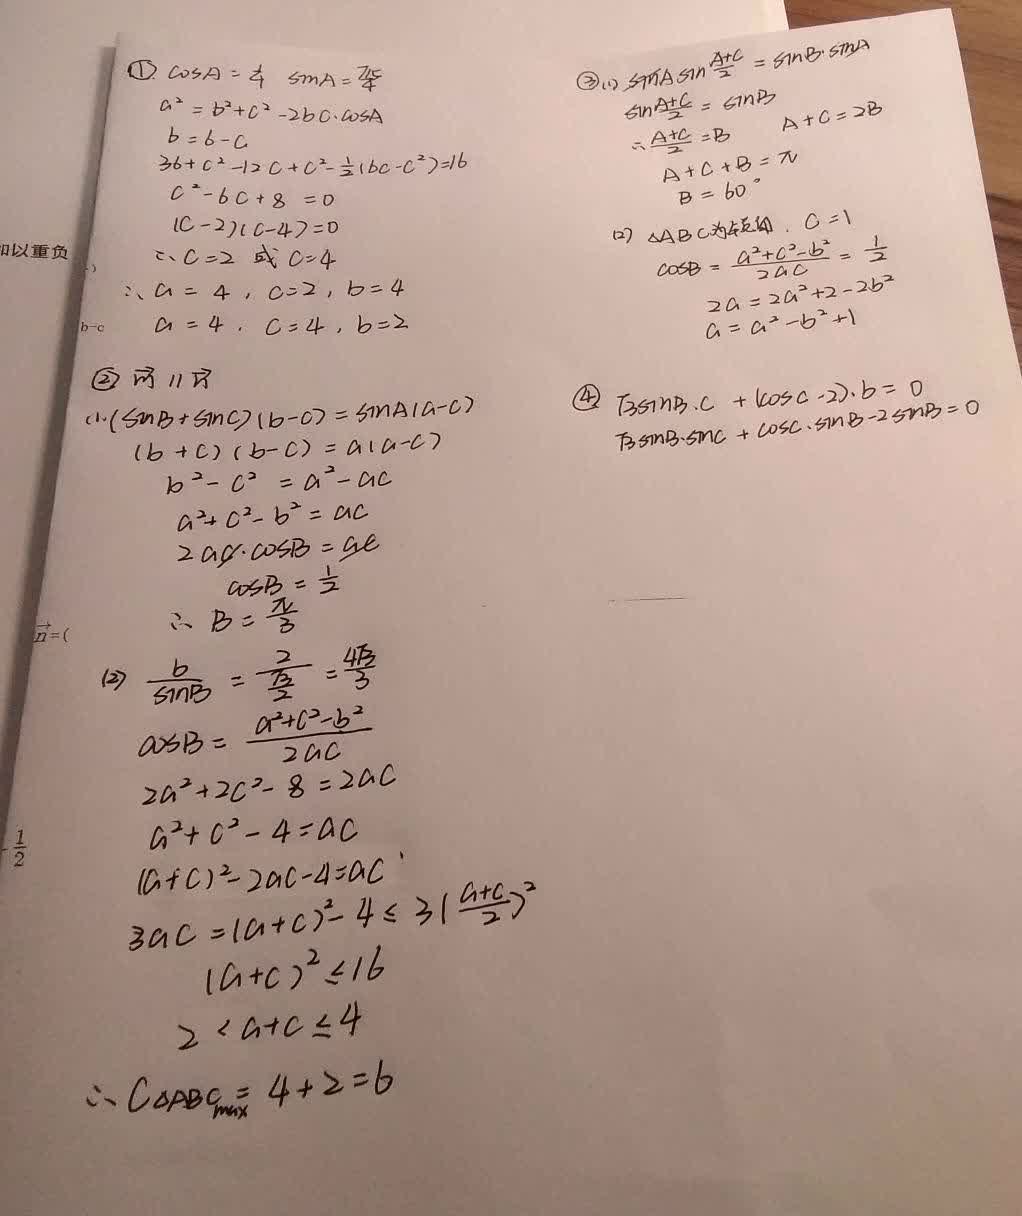 ① cosA = 1/4 sinA = √15/4
a² = b² + c² - 2bc·cosA
b = 6 - c
36 + c² - 12c + c² - 1/2(6c - c²) = 16
c² - 6c + 8 = 0
(c - 2)(c - 4) = 0
∴ c = 2 或 c = 4
∴ a = 4, c = 2, b = 4
a = 4, c = 4, b = 2
② m⃗ // n⃗
(1) (sinB + sinC)(b - c) = sinA(a - c)
(b + c)(b - c) = a(a - c)
b² - c² = a² - ac
a² + c² - b² = ac
2ac·cosB = ac
cosB = 1/2
∴ B = π/3
(2) b/sinB = 2/(√3/2) = 4√3/3
cosB = (a² + c² - b²)/2ac
2a² + 2c² - 8 = 2ac
a² + c² - 4 = ac
(a + c)² - 2ac - 4 = ac
3ac = (a + c)² - 4 ≤ 3((a + c)/2)²
(a + c)² ≤ 16
2 < a + c ≤ 4
∴ C△ABCmax = 4 + 2 = 6
③ (1) sinA sin (A+C)/2 = sinB·sinA
sin (A+C)/2 = sinB
∴ (A+C)/2 = B A + C = 2B
A + C + B = π
B = 60°
(2) △ABC为锐角, C = 1
cosB = (a² + c² - b²)/2ac = 1/2
2a = 2a² + 2 - 2b²
a = a² - b² + 1
④ √3sinB·c + (cosC - 2)·b = 0
√3sinB·sinC + cosC·sinB - 2sinB = 0
以重负
b-c
n⃗=(
1/2